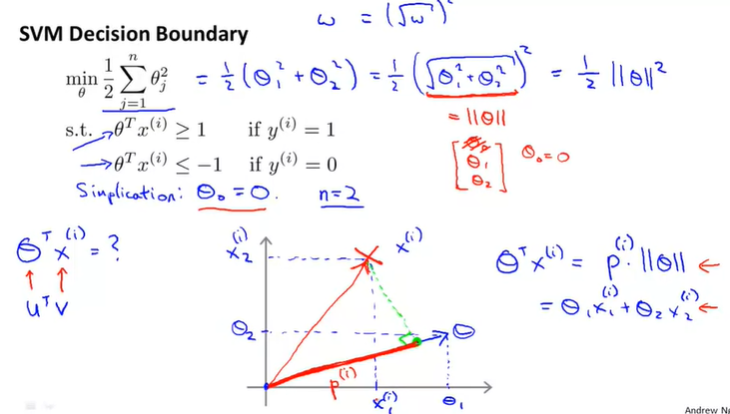 ω = (√ω)²
SVM Decision Boundary
min_θ 1/2 Σ_{j=1}^{n} θ_j² = 1/2 (θ₁² + θ₂²) = 1/2 (√(θ₁² + θ₂²))² = 1/2 ||θ||²
= ||θ||
s.t. θᵀx⁽ⁱ⁾ ≥ 1 if y⁽ⁱ⁾ = 1
θᵀx⁽ⁱ⁾ ≤ −1 if y⁽ⁱ⁾ = 0
θ₁
θ₂
θ₀=0
Simplication: θ₀ = 0. n=2
θᵀx⁽ⁱ⁾ = ?
uᵀv
x₂⁽ⁱ⁾
x⁽ⁱ⁾
θ₂
θ
p⁽ⁱ⁾
x₁⁽ⁱ⁾
θ₁
θᵀx⁽ⁱ⁾ = p⁽ⁱ⁾·||θ|| ←
= θ₁x₁⁽ⁱ⁾ + θ₂x₂⁽ⁱ⁾ ←
Andrew